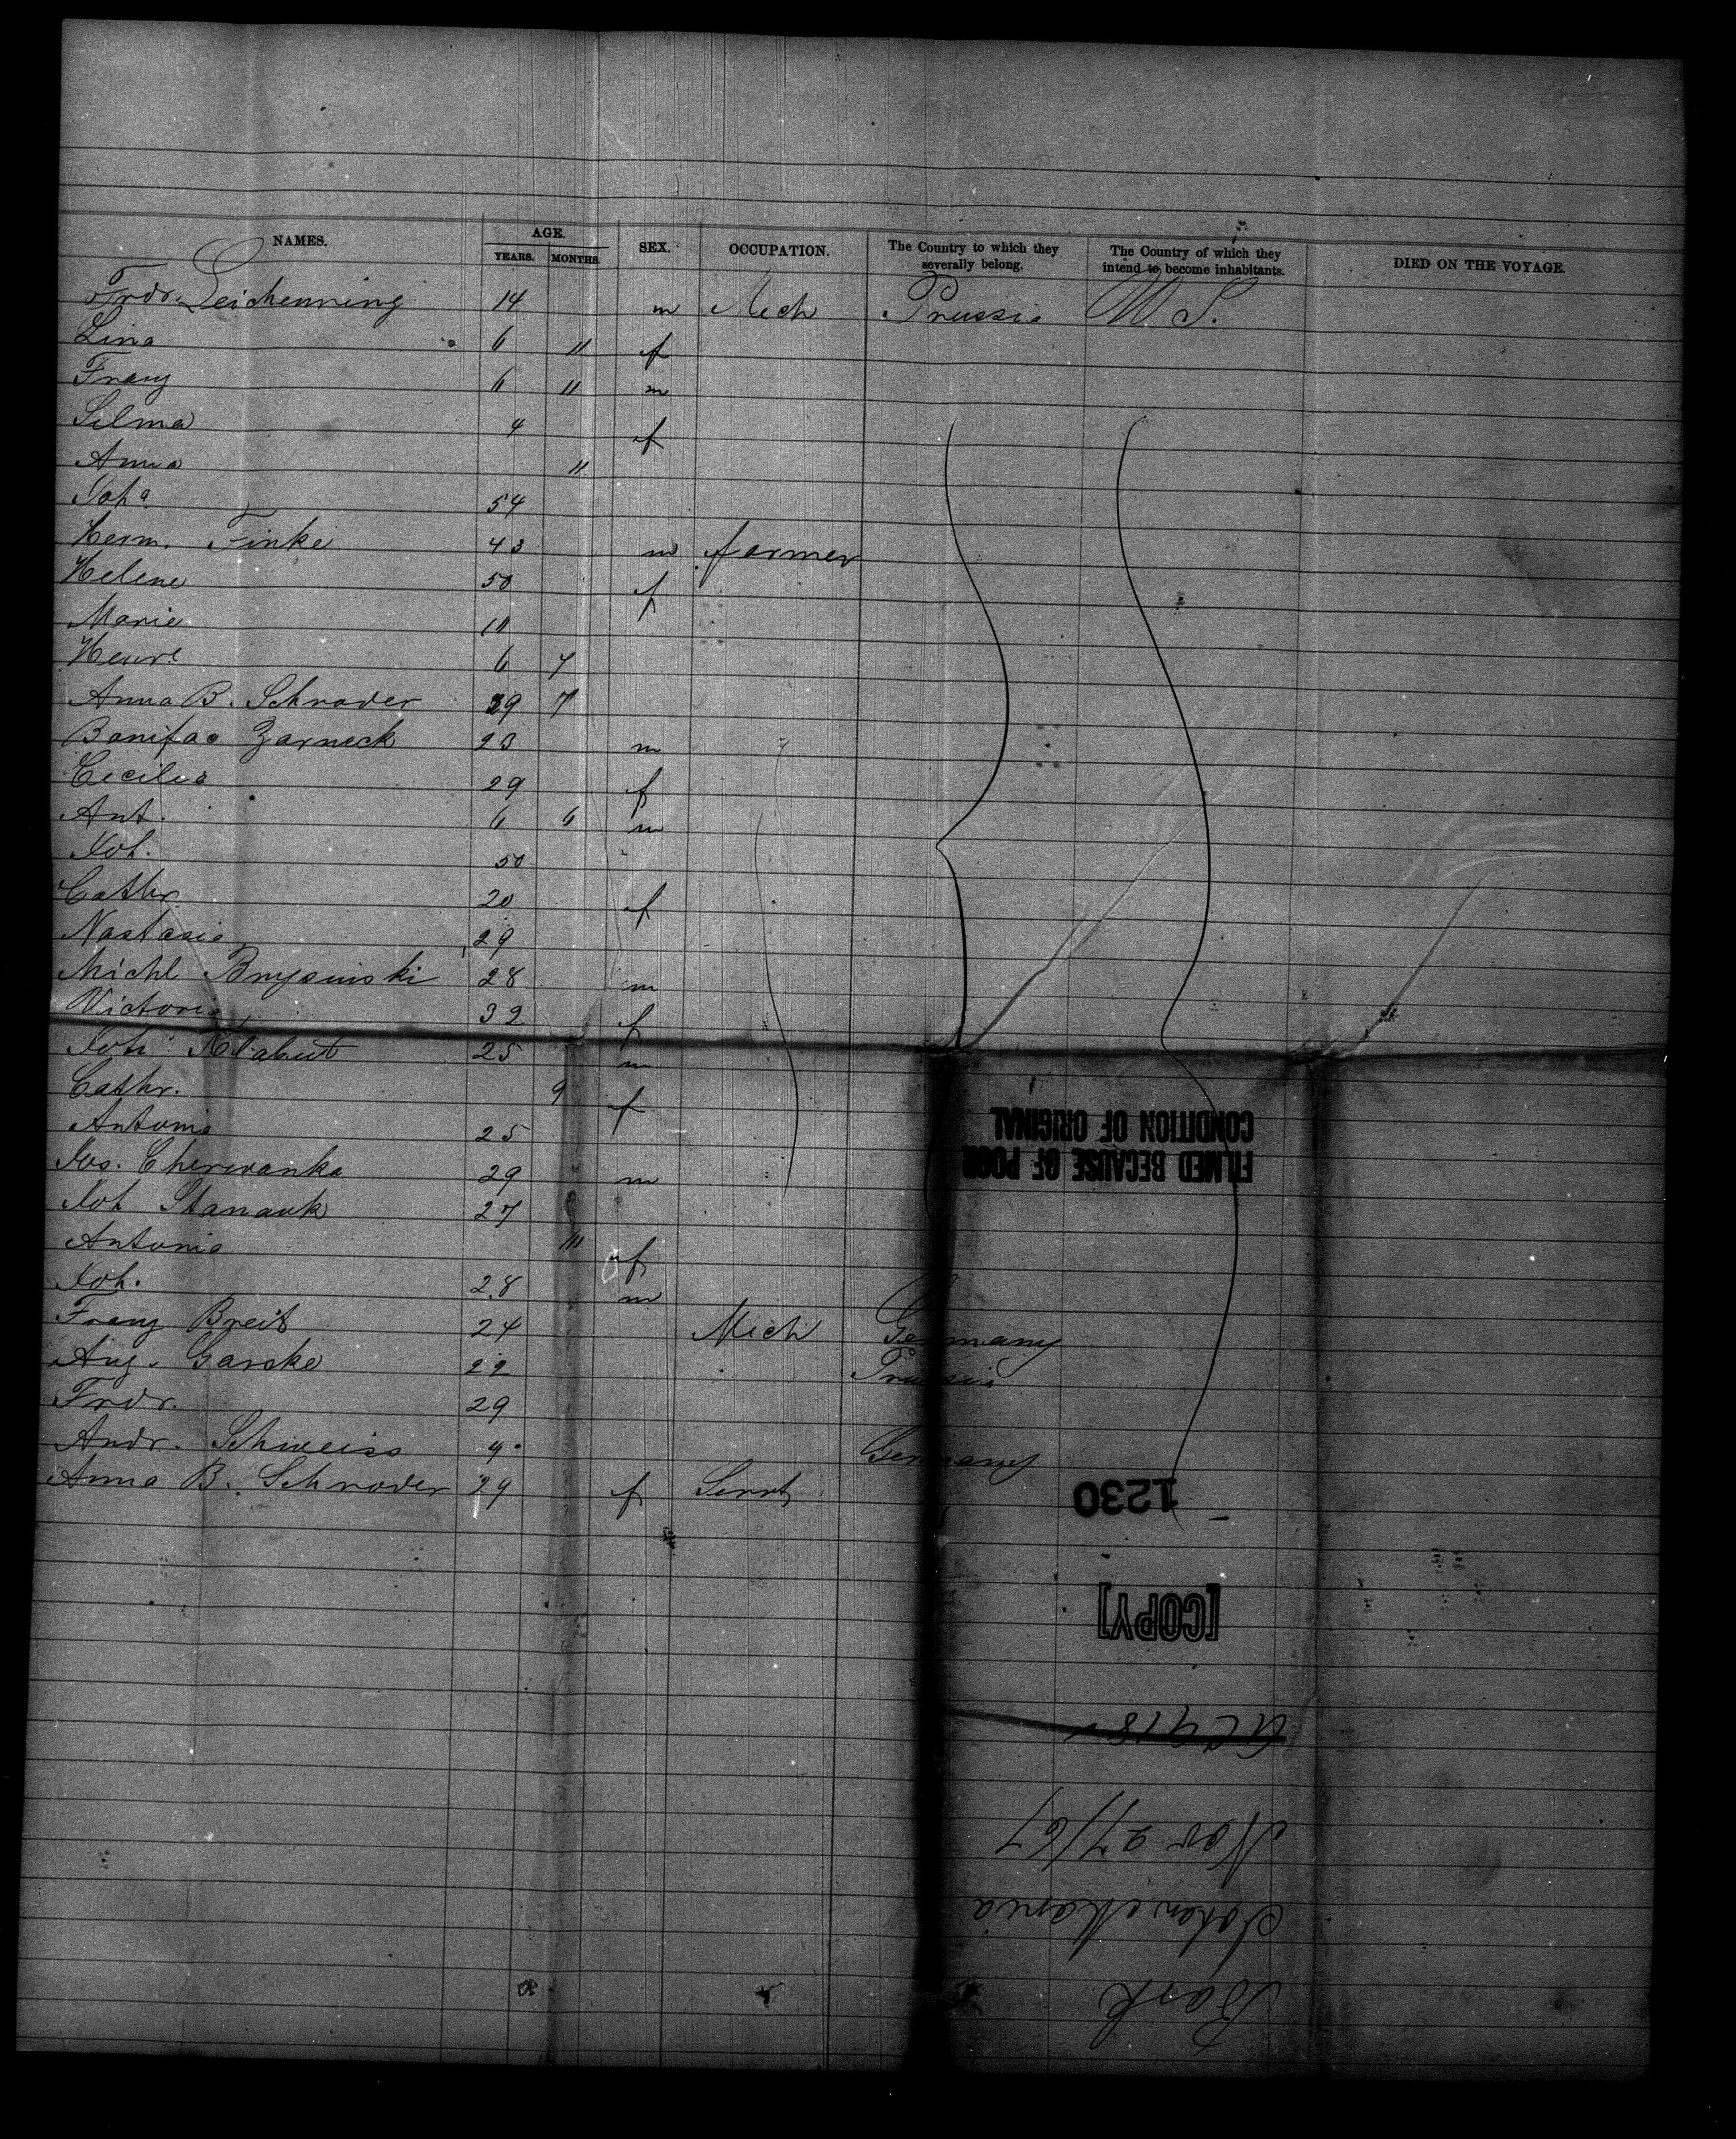 NAMES. AGE. YEARS. MONTHS. SEX. OCCUPATION. The Country to which they severally belong. The Country of which they intend to become inhabitants. DIED ON THE VOYAGE.
Frdr. Leichenring 14 m Mech Prussia U S.
Lina 6 " f
Franz 6 " m
Selma 4 f
Anna "
Joha 54
Herm. Finke 43 m farmer
Helene 50 f
Marie 11
Henre 6 7
Anna B. Schroder 29 7
Bonifac Zarneck 23 m
Cecilia 29 f
Ant. 6 6 m
Joh. 50
Cathr. 20 f
Nastasia 29
Michl 28 m
Victoria 32 f
Joh Klabut 25 m
Cathr. 9 f
Antonia 25
Jos. Cherwanka 29 m
Joh Stanauk 27
Antonia f
Joh. 28 m
Franz Breit 24 Mech Germany
Aug. Garske 22 Prussia
Frdr. 29
Andr. Schweiss Germany
Anna B. Schroder 29 f Servt
FILMED BECAUSE OF POOR
CONDITION OF ORIGINAL
1230
[COPY]
Nov 27/67
Johan Maria
Bark